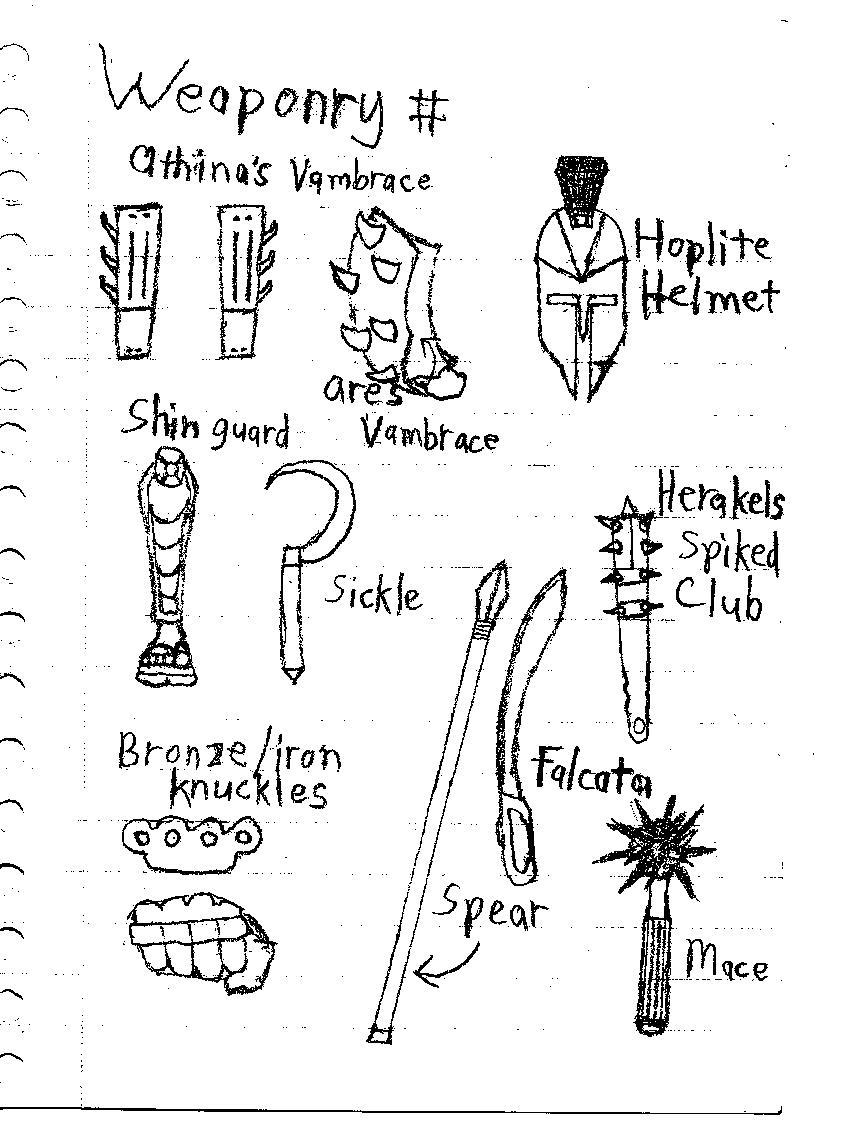 Weaponry #
athina's Vambrace
Hoplite
Helmet
ares
Vambrace
Shin guard
Sickle
Herakels
Spiked
Club
Falcata
Bronze/iron
knuckles
Spear
Mace